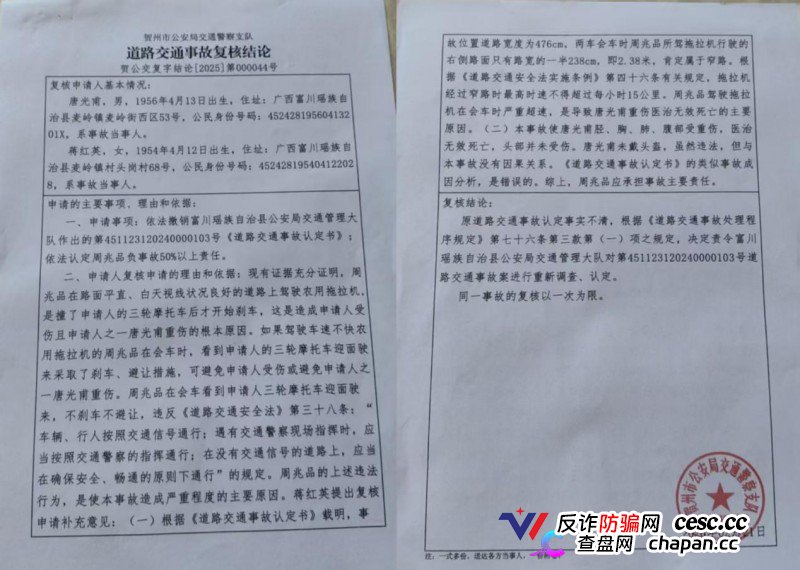 贺州市公安局交通警察支队
道路交通事故复核结论
贺公交复字结论[2025]第000044号
复核申请人基本情况：
唐光甫，男，1956年4月13日出生，住址：广西富川瑶族自
治县麦岭镇麦岭街西区53号，公民身份号码：45242819560413
201X，系事故当事人。
蒋红英，女，1954年4月12日出生，住址：广西富川瑶族自
治县麦岭镇村头岗村68号，公民身份号码：45242819540412202
8，系事故当事人。
申请的主要事项、理由和依据：
一、申请事项：依法撤销富川瑶族自治县公安局交通管理大
队作出的第451123120240000103号《道路交通事故认定书》；
依法认定周兆品负事故50%以上责任。
二、申请人复核申请的理由和依据：现有证据充分证明，周
兆品在路面平直、白天视线状况良好的道路上驾驶农用拖拉机，
是撞了申请人的三轮摩托车后才开始刹车，这是造成申请人受
伤且申请人之一唐光甫重伤的根本原因。如果驾驶车速不快农
用拖拉机的周兆品在会车时，看到申请人的三轮摩托车迎面驶
来采取了刹车、避让措施，可避免申请人受伤或避免申请人之
一唐光甫重伤。周兆品在会车看到申请人三轮摩托车迎面驶
来，不刹车不避让，违反《道路交通安全法》第三十八条：“
车辆、行人按照交通信号通行；遇有交通警察现场指挥时，应
当按照交通警察的指挥通行；在没有交通信号的道路上，应当
在确保安全、畅通的原则下通行”的规定。周兆品的上述违法
行为，是使本事故造成严重程度的主要原因。蒋红英提出复核
申请补充意见：（一）根据《道路交通事故认定书》载明，事
故位置道路宽度为476cm，两车会车时周兆品所驾拖拉机行驶的
右侧路面只有路宽的一半238cm，即2.38米，肯定属于窄路。根
据《道路交通安全法实施条例》第四十六条有关规定，拖拉机
经过窄路时最高时速不得超过每小时15公里。周兆品驾驶拖拉
机在会车时严重超速，是导致唐光甫重伤医治无效死亡的主要
原因。（二）本事故使唐光甫胫、胸、肺、腹部受重伤，医治
无效死亡，头部并未受伤。唐光甫未戴头盔。虽然违法，但与
本事故没有因果关系。《道路交通事故认定书》的类似事故成
因分析，是错误的。综上，周兆品应承担事故主要责任。
复核结论：
原道路交通事故认定事实不清，根据《道路交通事故处理程
序规定》第七十六条第三款第（一）项之规定，决定责令富川
瑶族自治县公安局交通管理大队对第451123120240000103号道
路交通事故案进行重新调查、认定。
同一事故的复核以一次为限。
贺州市公安局交通警察支队
注：一式多份，送达各方当事人，一份附卷。
反诈防骗网 cesc.cc
查盘网 chapan.cc